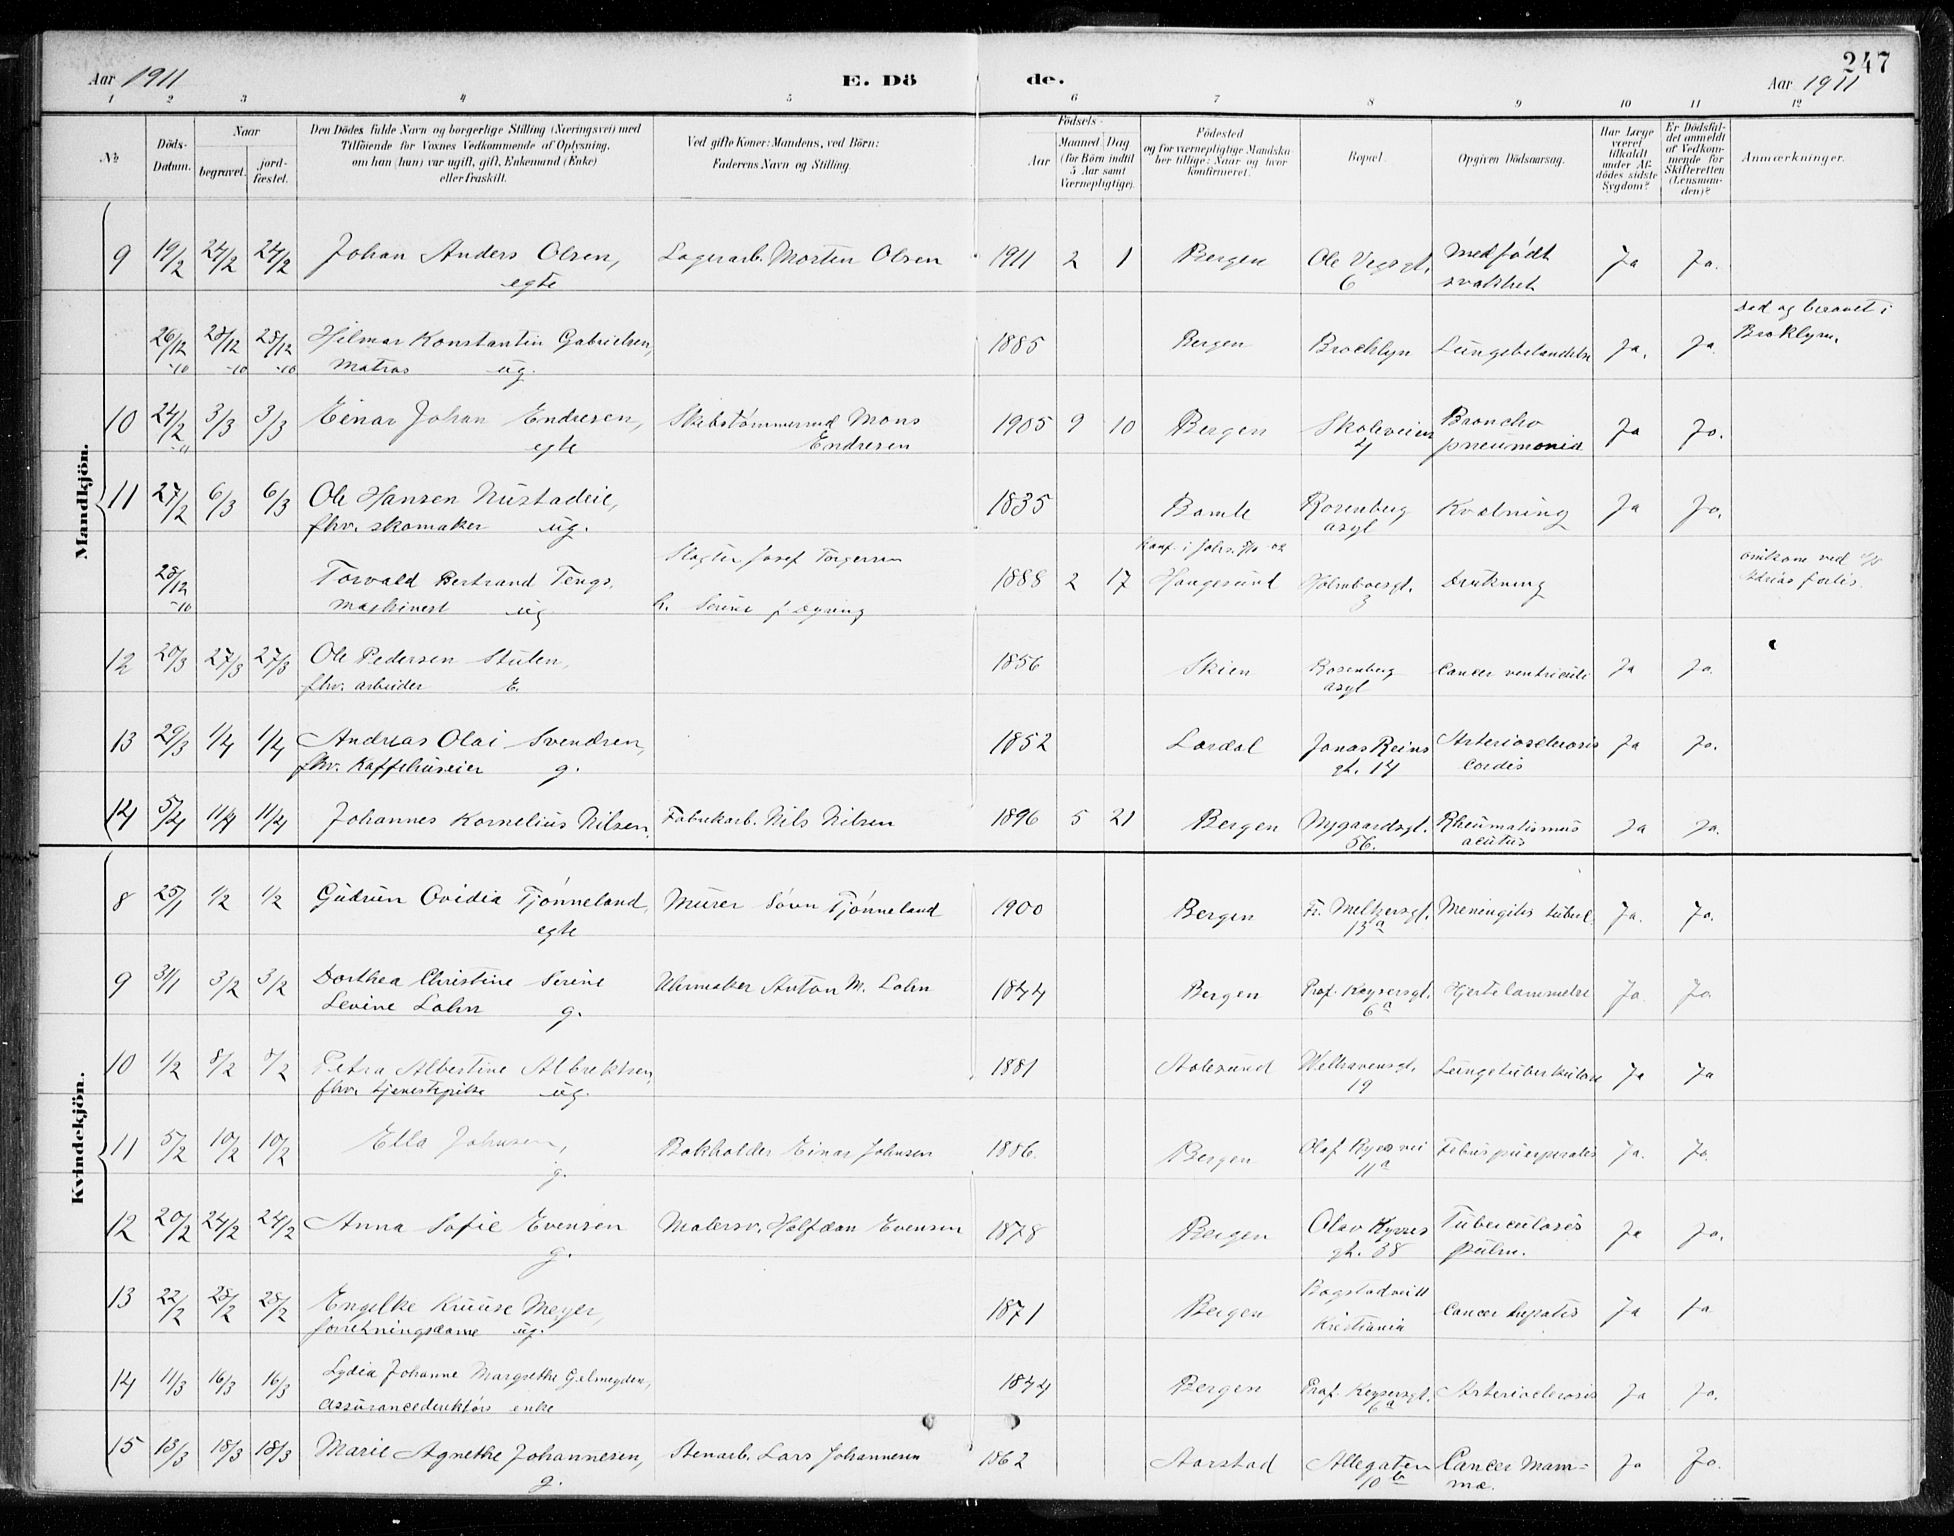 247
Aar 1911 E. Dö de. Aar 1911
1 2 3 4 5 6 7 8 9 10 11 12
No.
Döds-Datum.
Naar
begravet.
jordfæstet.
Den Dödes fulde Navn og borgerlige Stilling (Næringsvei) med
Tilföiende for Voxnes Vedkommende af Oplysning,
om han (hun) var ugift, gift, Enkemand (Enke)
eller fraskilt.
Ved gifte Koner: Mandens, ved Börn:
Faderens Navn og Stilling.
Födsels-
Aar
Maaned Dag
(for Börn indtil
5 Aar samt
Værnepligtige).
Födested
og for værnepligtige Mandska-
ber tillige: Naar og hvor
konfirmeret.
Bopæl.
Opgiven Dödsaarsag.
Har Læge
været
tilkaldt
under Af-
dödes sidste
Sygdom?
Er Dödsfal-
det anmeldt
af Vedkom-
mende for
Skifteretten
(Lensman-
den)?
Anmærkninger.
Mandkjön.
9 19/2 24/2 24/2 Johan Anders Olsen, Lagerarb. Morten Olsen 1911 2 1 Bergen Ole Vigsgt. Medfødt Ja Ja.
egte 6 svakhet
Død og begravet i
26/12 28/12 28/12 Hilmar Konstantin Gabrielsen, 1885 Bergen Brocklyn Lungebetændelse Ja. Ja. Broklyn.
-10 -10 -10 Matros ug.
10 24/2 3/3 3/3 Einar Johan Endresen, Skibstømmermd Mons 1905 9 10 Bergen Skoleveien Broncho Ja Ja.
-11 egte Endresen 4 pneumonia
11 27/2 6/3 6/3 Ole Hansen Nustadeie, 1835 Bamle Rosenberg Kvælning Ja Ja.
fhv. skomaker ug. asyl
Slagter Josef Torgersen Konf. i Johs.
28/12 Torvald Bertrand Tengs, 1888 2 17 Haugesund Drukning omkom ved
-10 Maskinest ug 3 forlis.
12 20/3 27/3 27/3 Ole Pedersen Stulen, 1856 Skien Rosenberg Cancer ventriculi Ja Ja.
fhv. arbeider E. asyl
13 29/3 1/4 1/4 Andreas Olai Svendsen, 1852 Lærdal Jonas Reins Arteriosclerosis Ja Ja.
fhv. Kaffehuseier g. gt. 14 cordis
14 5/4 11/4 11/4 Johannes Kornelius Nilsen, Fabrikarb. Nils Nilsen 1896 5 21 Bergen Nygaardsgt. Rheumatismus Ja Ja.
56. acutus
Kvindekjön.
8 25/1 1/2 1/2 Gudrun Ovidia Tjønneland, Murer Søvn Tjønneland 1900 Bergen Fr. Meltzersgt. Meningitis tubul. Ja. Ja.
egte 13a
9 31/1 3/2 3/2 Dorthea Christine Serine Uhrmaker Anton M. Lohn 1844 Bergen Prof. Keysersgt. Hjertelammelse Ja. Ja
Levine Lohn g. 6a
10 1/2 8/2 8/2 Petra Albertine Albrektsen, 1881 Aalesund Welhavensgt. Lungetuberkulose Ja Ja
fhv. tjenestepike ug. 19
11 5/2 10/2 10/2 Ella Johnsen, Bokholder Einar Johnsen 1886. Bergen Olaf Ryesvei Febris puerperalis Ja. Ja.
g. 11a
12 20/2 24/2 24/2 Anna Sofie Evensen Malersv. Halfdan Evensen 1878 Bergen Olav Kyrres Tuberculosis Ja Ja.
g. gt. 38 pulm.
13 22/2 28/2 28/2 Engelke Kruuse Meyer, 1871 Bergen Bogstadveien Cancer hepatis Ja Ja
forretningsdame ug. Kristiania
14 11/3 16/3 16/3 Lydia Johanne Margrethe Gelmeyden, 1844 Bergen Prof. Keysersgt. Arteriosclerosis Ja Ja.
assurancedirektørs enke 6a
15 13/3 18/3 18/3 Marie Agnethe Johannesen, Stenarb. Lars Johannesen 1862 Aarstad Allegaten Cancer Mam- Ja Ja.
g. 10b mæ.